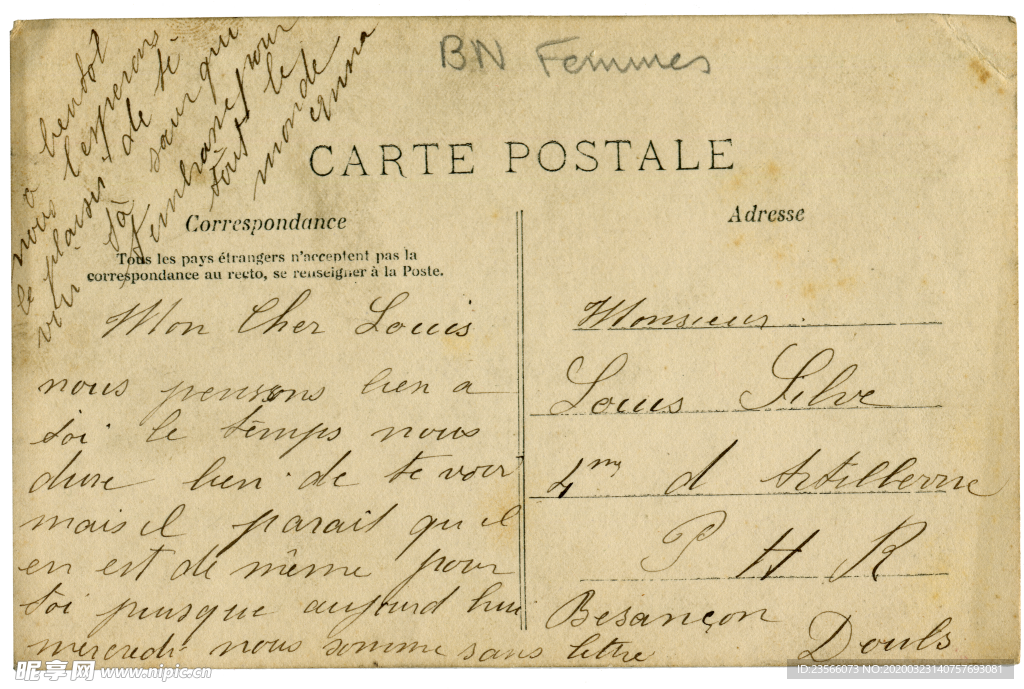 BN Femmes
CARTE POSTALE
Correspondance
Tous les pays étrangers n'acceptent pas la
correspondance au recto, se renseigner à la Poste.
Adresse
Mon Cher Louis
nous pensons bien a
toi le temps nous
dure bien de te voir
mais il parait qu il
en est de même pour
toi puisque aujourd hui
mercredi nous somme sans lettre
a bendot
nous l esperons
le plaisir de te
voir ta sœur qui
t embrasse pour
tout le
monde
Monsieur
Louis Silve
4me d Artillerie
P H R
Besançon
Doubs
昵享网 www.nipic.cn
ID:23566073 NO:20200323140757693081